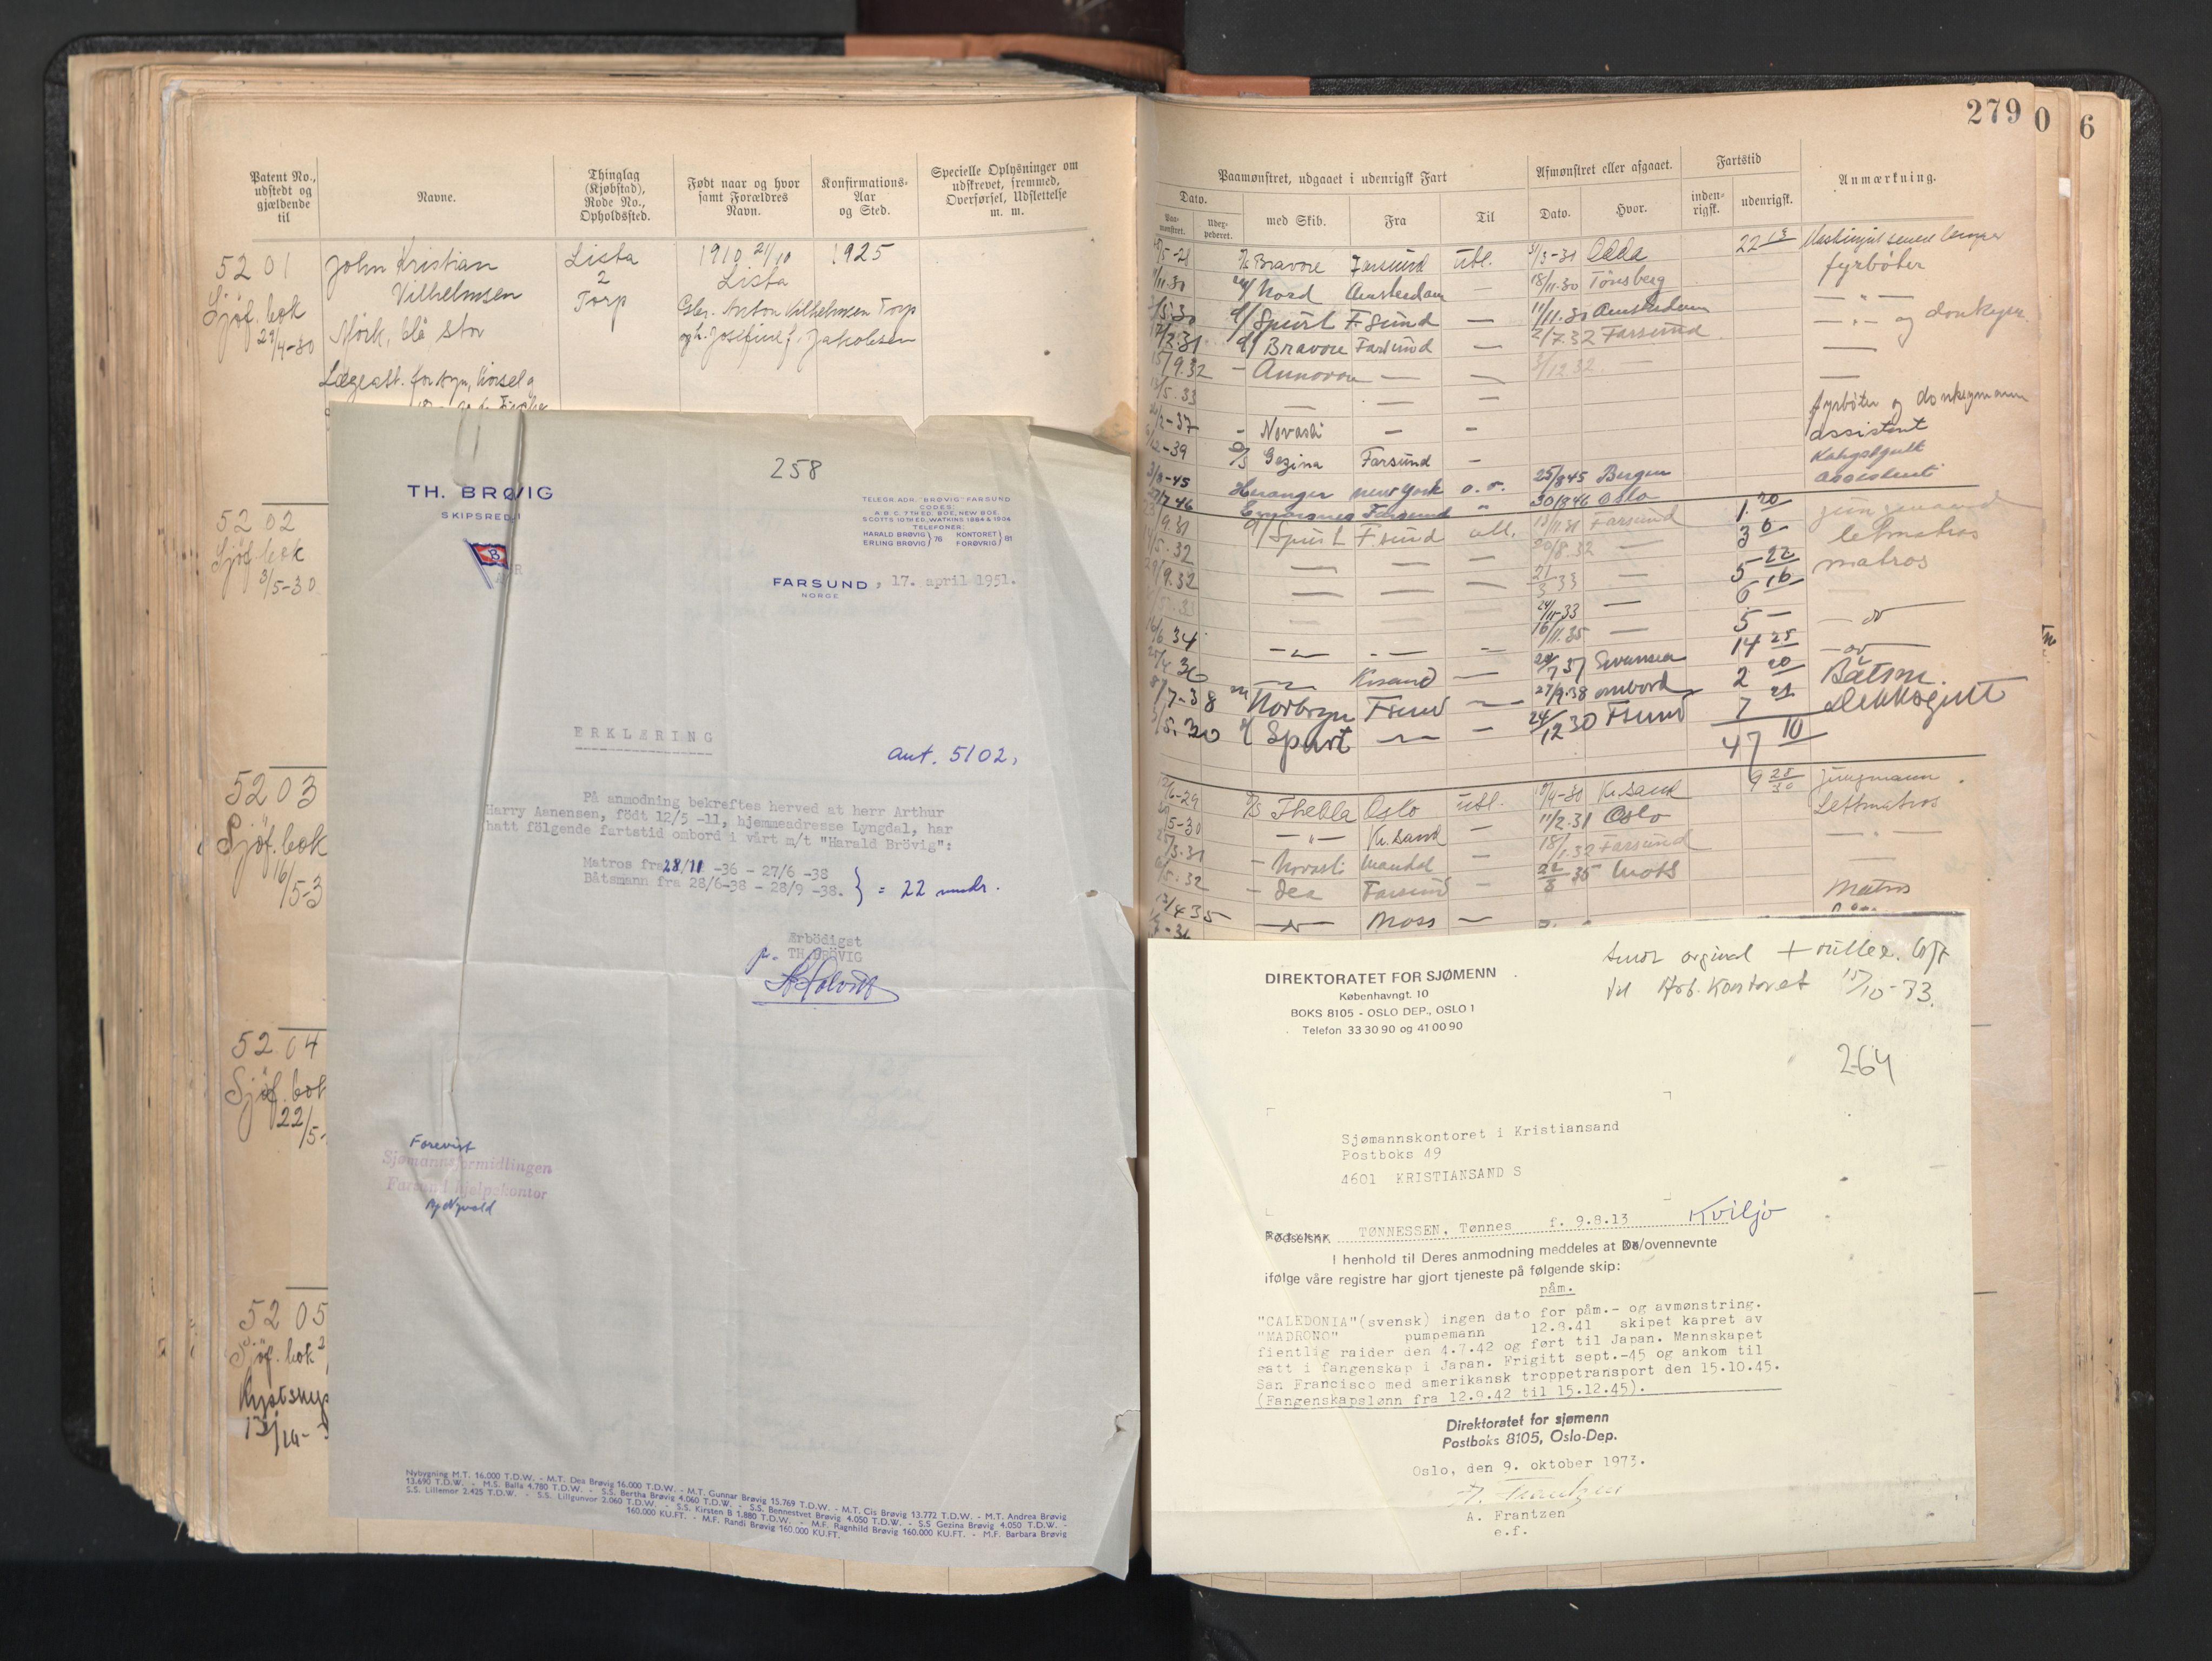 279 0 6
Patent No., udstedt og gjældende til
Navne.
Thinglag (Kjøbstad), Rode No., Opholdssted.
Født naar og hvor samt Forældres Navn.
Konfirmations-Aar og Sted.
Specielle Oplysninger om udskrevet, fremmed, Overførsel, Udslettelse m. m.
5201 John Kristian Lista 1910 21/10 1925
Vilhelmsen 2 Lista
Sjöf. bok Torp Anton Vilhelmsen Torp
29/4-30 Mörk, blå, stor og h. Josefine f. Jakobsen
Lægeatt. for syn, hörsel og
5202
Sjöf. bok
3/5-30
5203
Sjöf. bok
16/5-3
5204
Sjöf. bok
22/5-
5205
Sjöf. bok
258
TH. BRØVIG
SKIPSREDERI
B
TELEGR. ADR. "BRØVIG" FARSUND
CODES:
A B C. 7TH ED. BOE, NEW BOE
SCOTTS 10TH ED., WATKINS 1884 & 1904
TELEFONER:
HARALD BRØVIG } 76 KONTORET } 81
ERLING BRØVIG } FORØVRIG }
FARSUND, 17. april 1951.
NORGE
ERKLÆRING
aut. 5102,
På anmodning bekreftes herved at herr Arthur
Harry Aanensen, födt 12/5 -11, hjemmeadresse Lyngdal, har
hatt fölgende fartstid ombord i vårt m/t "Harald Brövig":
Matros fra 28/11 -36 - 27/6 -38
Båtsmann fra 28/6-38 - 28/9 -38. } = 22 mndr.
Ærbödigst
p. TH. BRÖVIG
Forevist
Sjømannsformidlingen
Farsund hjelpekontor
Nybygning M.T. 16.000 T.D.W. - M.T. Dea Brøvig 16.000 T.D.W. - M.T. Gunnar Brøvig 15.769 T.D.W. - M.T. Cis Brøvig 13.772 T.D.W. - M.T. Andrea Brøvig
13.690 T.D.W. - M.S. Balla 4.780 T.D.W. - S.S. Bertha Brøvig 4.060 T.D.W. - S.S. Bennestvet Brøvig 4.050 T.D.W. - S.S Gezina Brøvig 4.050 T.D.W. -
S.S. Lillemor 2.425 T.D.W. - S.S. Lillgunvor 2.060 T.D.W. - S.S. Kirsten B 1.880 T.D.W. - M.F. Ragnhild Brøvig 160.000 KU.FT. - M.F. Barbara Brøvig
160.000 KU.FT. - M.F. Randi Brøvig 160.000 KU.FT.
Paamønstret, udgaaet i udenrigsk Fart
Afmønstret eller afgaaet.
Fartstid
Anmærkning.
Dato.
Paamønstret. Udexpederet. med Skib. Fra Til Dato. Hvor. indenrigsk. udenrigsk.
Bravore Farsund utl. Odda 22
Nord Amsterdam — 18/11.30 Tönsberg fyrböter
Spurt F.sund — 11/11.30 Amsterdam — " —
Bravore Farsund — 2/7.32 Farsund — " — og donkeym.
15/9.32 - Annovore — — 3/12.32 —
/5.33 — — —
/2-37 - Novasli — - fyrböter og donkeymann
/2-39 D/S Gezina Farsund — assistent
-45 Heranger New York o.o. 25/8 45 Bergen
46 Farsund " 30/8 46 Oslo assistent
/9.31 Spurt F.sund utl. Farsund 1 20
/5.32 — — 20/8.32 — 3 6 letmatros
/9.32 — — — 21/3 33 — 5 22 matros
24/11-33 — 6 16
16/6 34 — — — 16/11.35 — 5 —
25/4 36 Krsand — 37 Swansea 14 25
8/7-38 Norbryn Fsund — 27/9.38 ombord 2 20 Båtsm.
3/5.30 Spurt — — 24/12 30 Fsund 7 21 Dekksgutt
47 10
/6-29 D/S Thekla Oslo utl. /4-30 Kr.sand 9 28/30 jungmann.
/5-30 — " — Kr.sand — 11/2.31 Oslo Lettmatros
/3.31 - Novasli Mandal — 18/1.32 Farsund — " —
/5.32 - Dea Farsund — 22/8 35 Moss
/4 35 — " — Moss — Matros
DIREKTORATET FOR SJØMENN
Københavngt. 10
BOKS 8105 - OSLO DEP., OSLO 1
Telefon 33 30 90 og 41 00 90
til Arb. Kontoret 15/10-73.
264
Sjømannskontoret i Kristiansand
Postboks 49
4601 KRISTIANSAND S
Fødselsnr. TØNNESSEN, Tønnes f. 9.8.13 Kviljo
I henhold til Deres anmodning meddeles at De/ovennevnte
ifølge våre registre har gjort tjeneste på følgende skip:
påm.
"CALEDONIA"(svensk) ingen dato for påm.- og avmønstring.
"MADRONO" pumpemann 12.8.41 skipet kapret av
fientlig raider den 4.7.42 og ført til Japan. Mannskapet
satt i fangenskap i Japan. Frigitt sept.-45 og ankom til
San Francisco med amerikansk troppetransport den 15.10.45.
(Fangenskapslønn fra 12.9.42 til 15.12.45).
Direktoratet for sjømenn
Postboks 8105, Oslo-Dep.
Oslo, den 9. oktober 1973.
A. Frantzen
A. Frantzen
e.f.